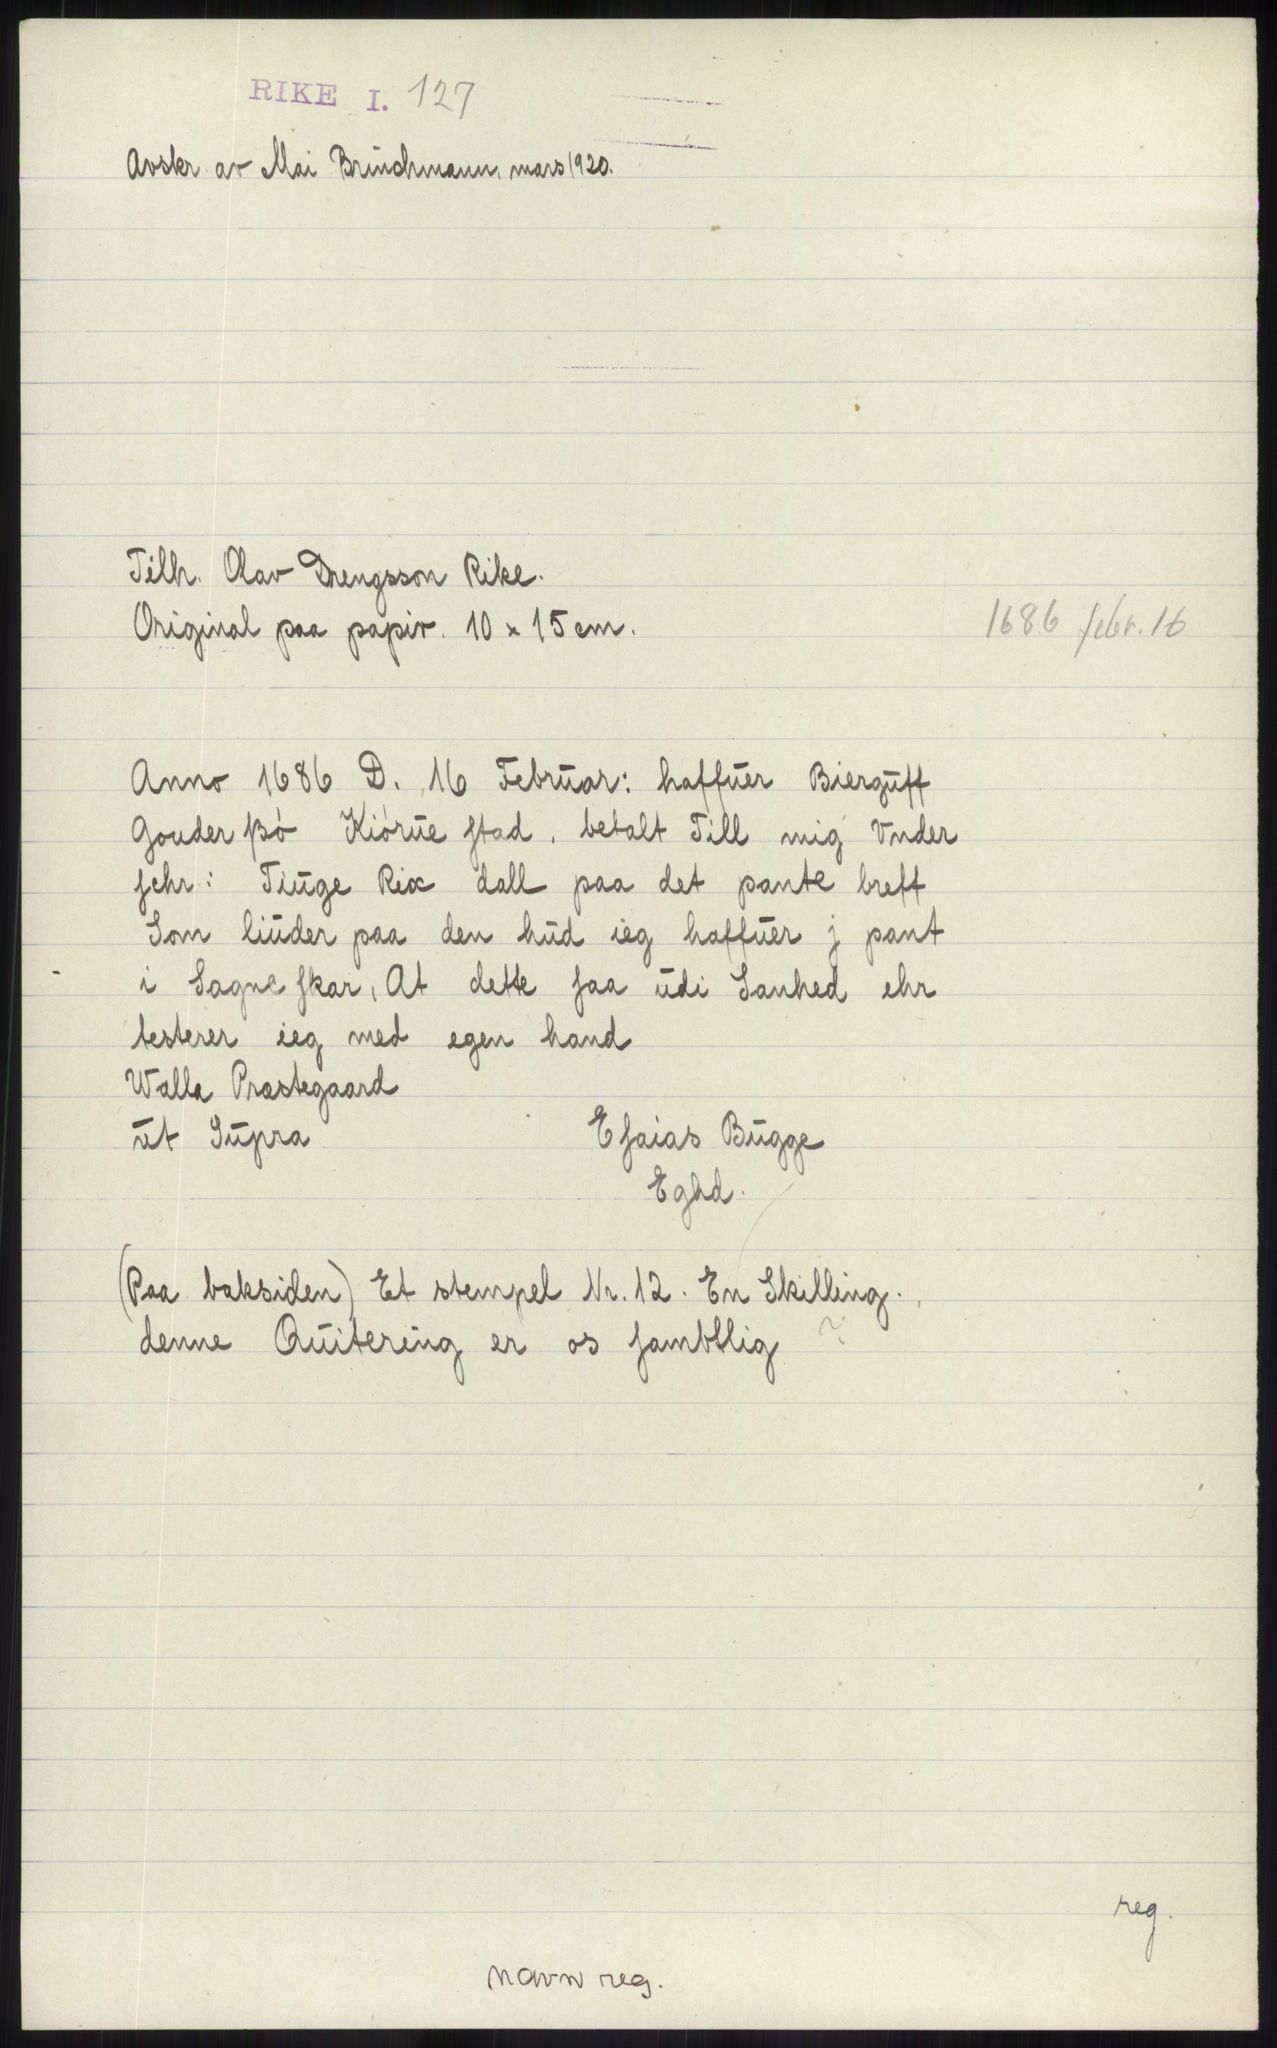 RIKE I. 127
Avskr. av Mai Brüchmann, mars 1920.
Tilh. Olav Drengsson Rike.
Original paa papir. 10 x 15 cm.
1686 febr. 16
Anno 1686 D. 16 Februar: haffuer Bierguff
Gouder ßó Kiórue stad, betalt Till mig Vnder
schr: Tiuge Rix dall paa det pante breff
Som liuder paa den hud ieg haffuer j pant
i Sagneskar, At dette saa udi Sanhed ehr
testerer ieg med egen hand
Walle Præstegaard
ut Supra
Esaias Bugge
Eghd.
(Paa baksiden) Et stempel Nr. 12. En Skilling.
denne Quitering er os sambtlig ?
reg.
navn reg.